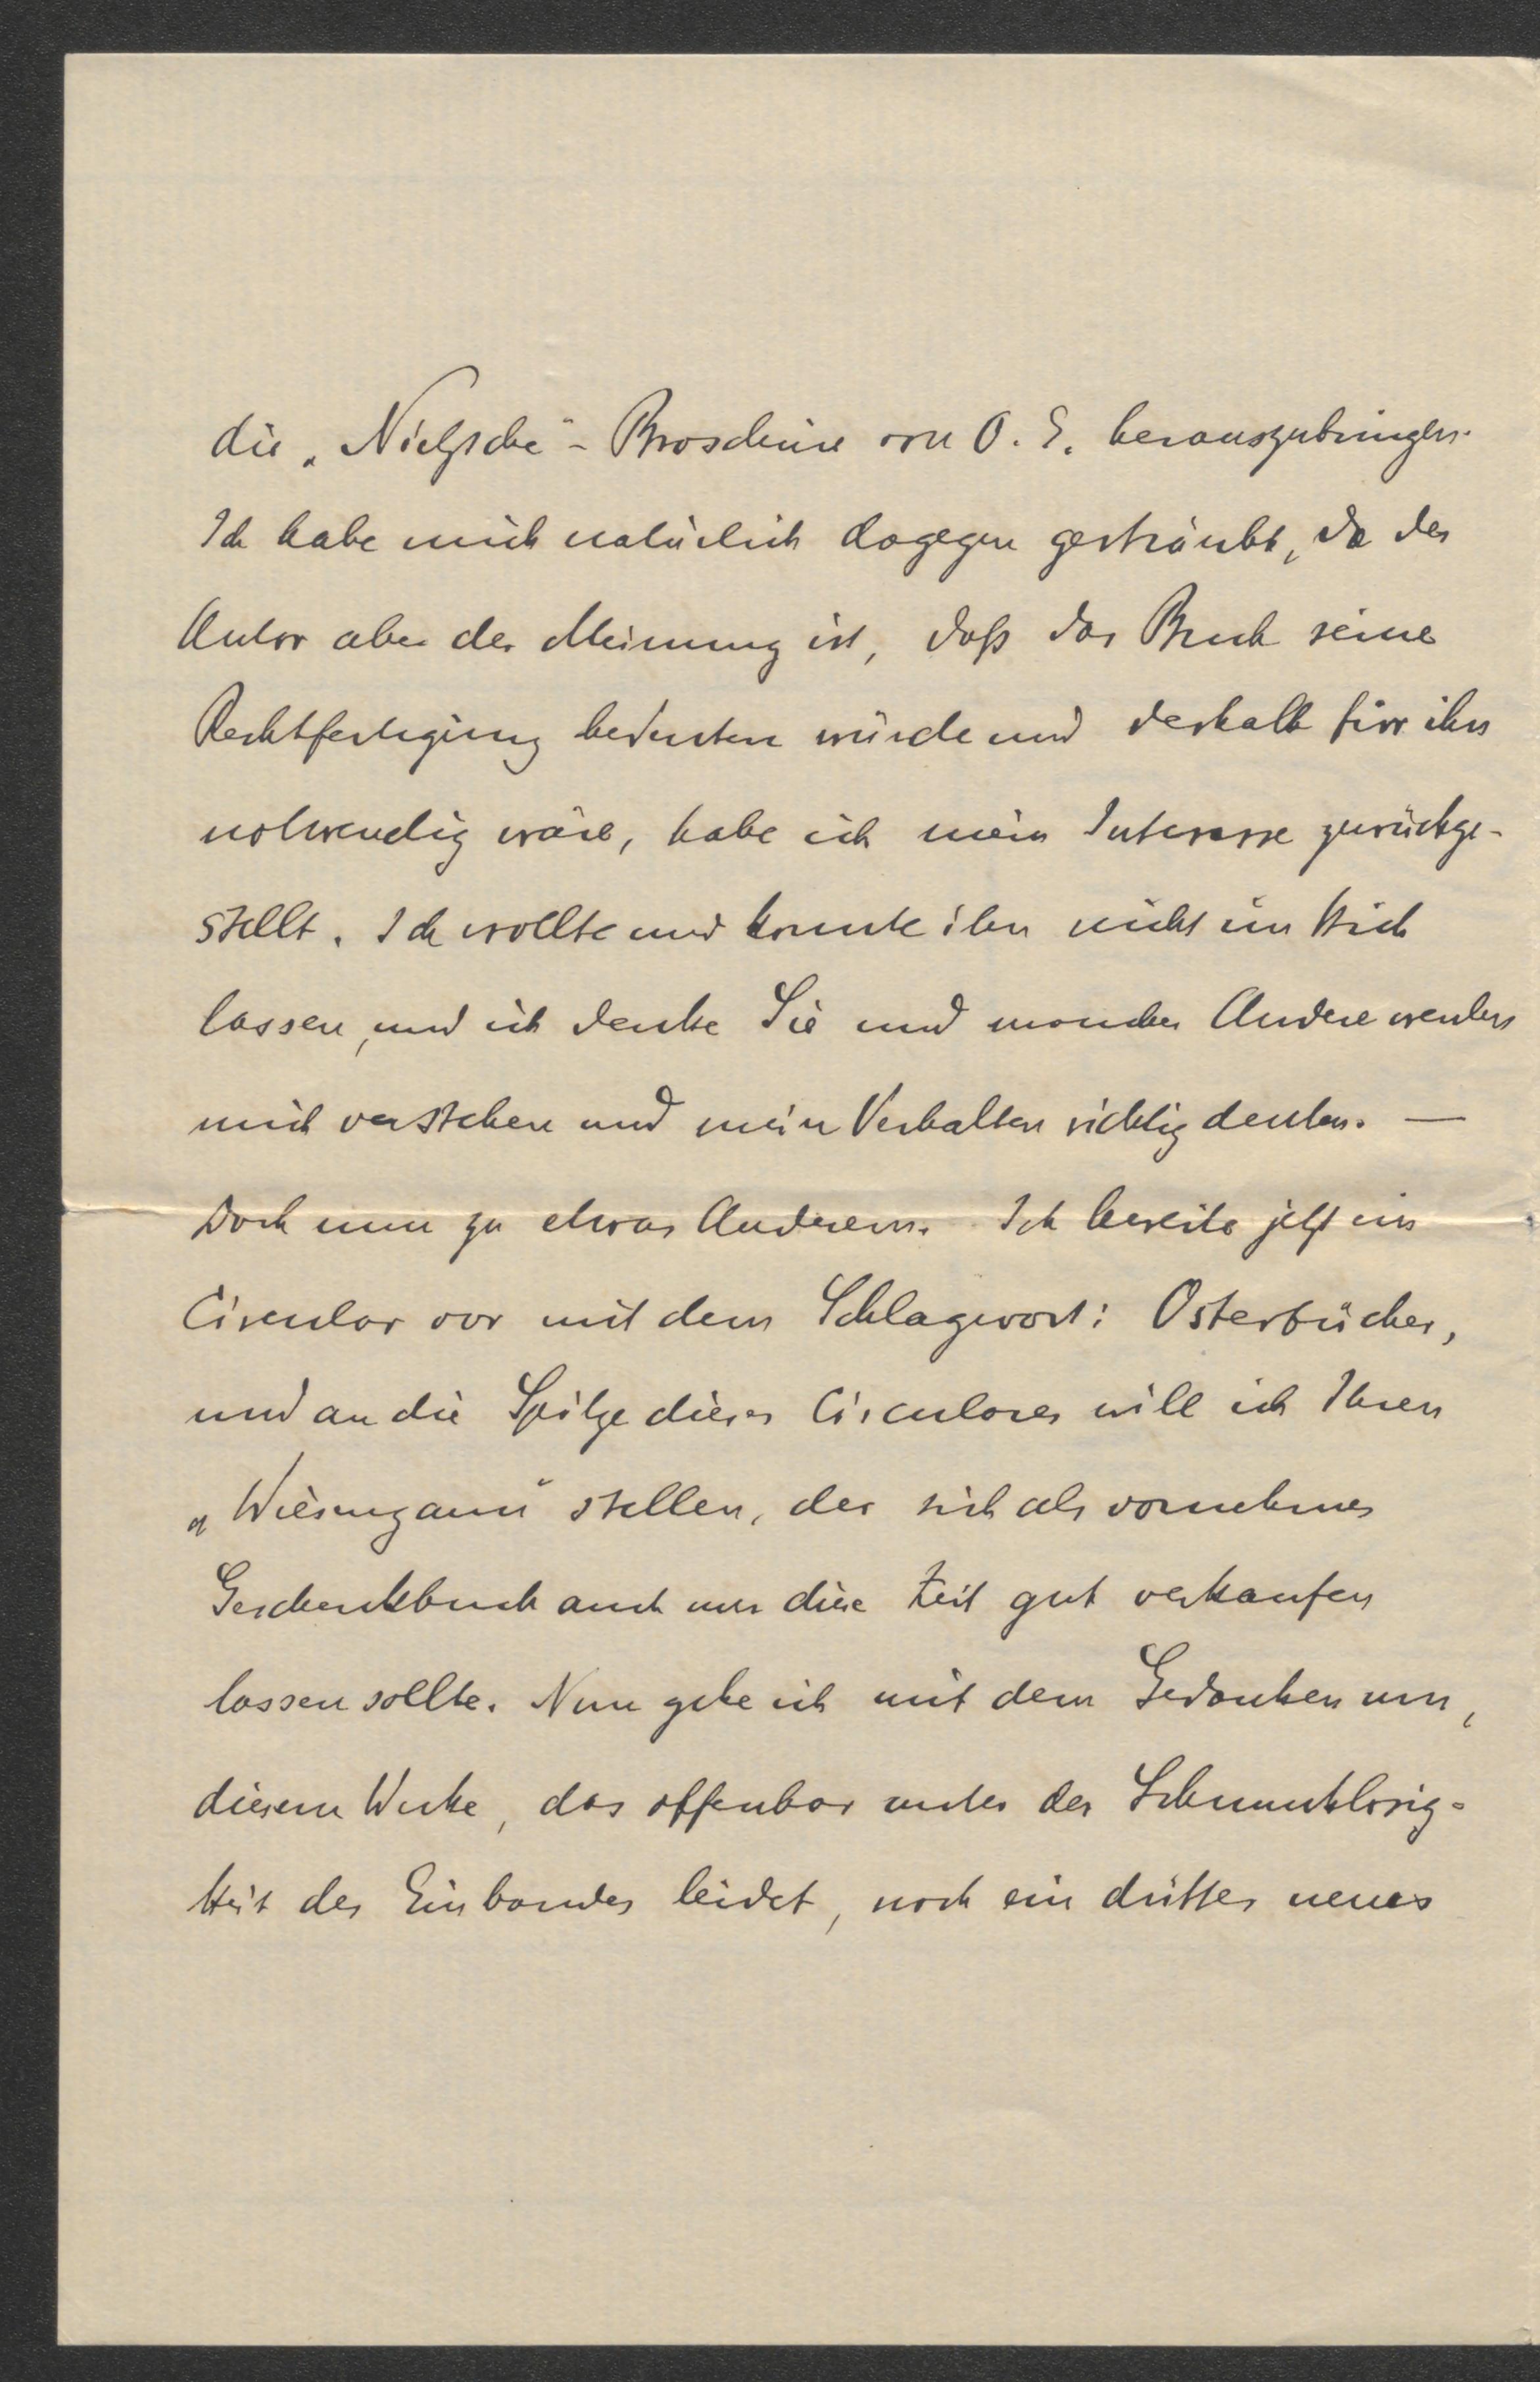 die „Nietzsche“-Broschüre von O. E. herauszubringen.
Ich habe mich natürlich dagegen gesträubt, da der
Autor aber der Meinung ist, daß das Buch seine
Rechtfertigung bedeuten würde und deshalb für ihn
notwendig wäre, habe ich mein Interesse zurückge-
stellt. Ich wollte und konnte ihn nicht im Stich
lassen, und ich denke Sie und mancher Andere werden
mich verstehen und mein Verhalten richtig deuten. —
Doch nun zu etwas Anderem. Ich bereite jetzt ein
Circular vor mit dem Schlagwort: Osterbücher,
und an die Spitze dieses Circulares will ich Ihren
„Wiesenzaun“ stellen, der sich als vornehmes
Geschenkbuch auch um diese Zeit gut verkaufen
lassen sollte. Nun gehe ich mit dem Gedanken um,
diesem Werke, das offenbar unter der Schmucklosig-
keit des Einbandes leidet, noch ein drittes neues